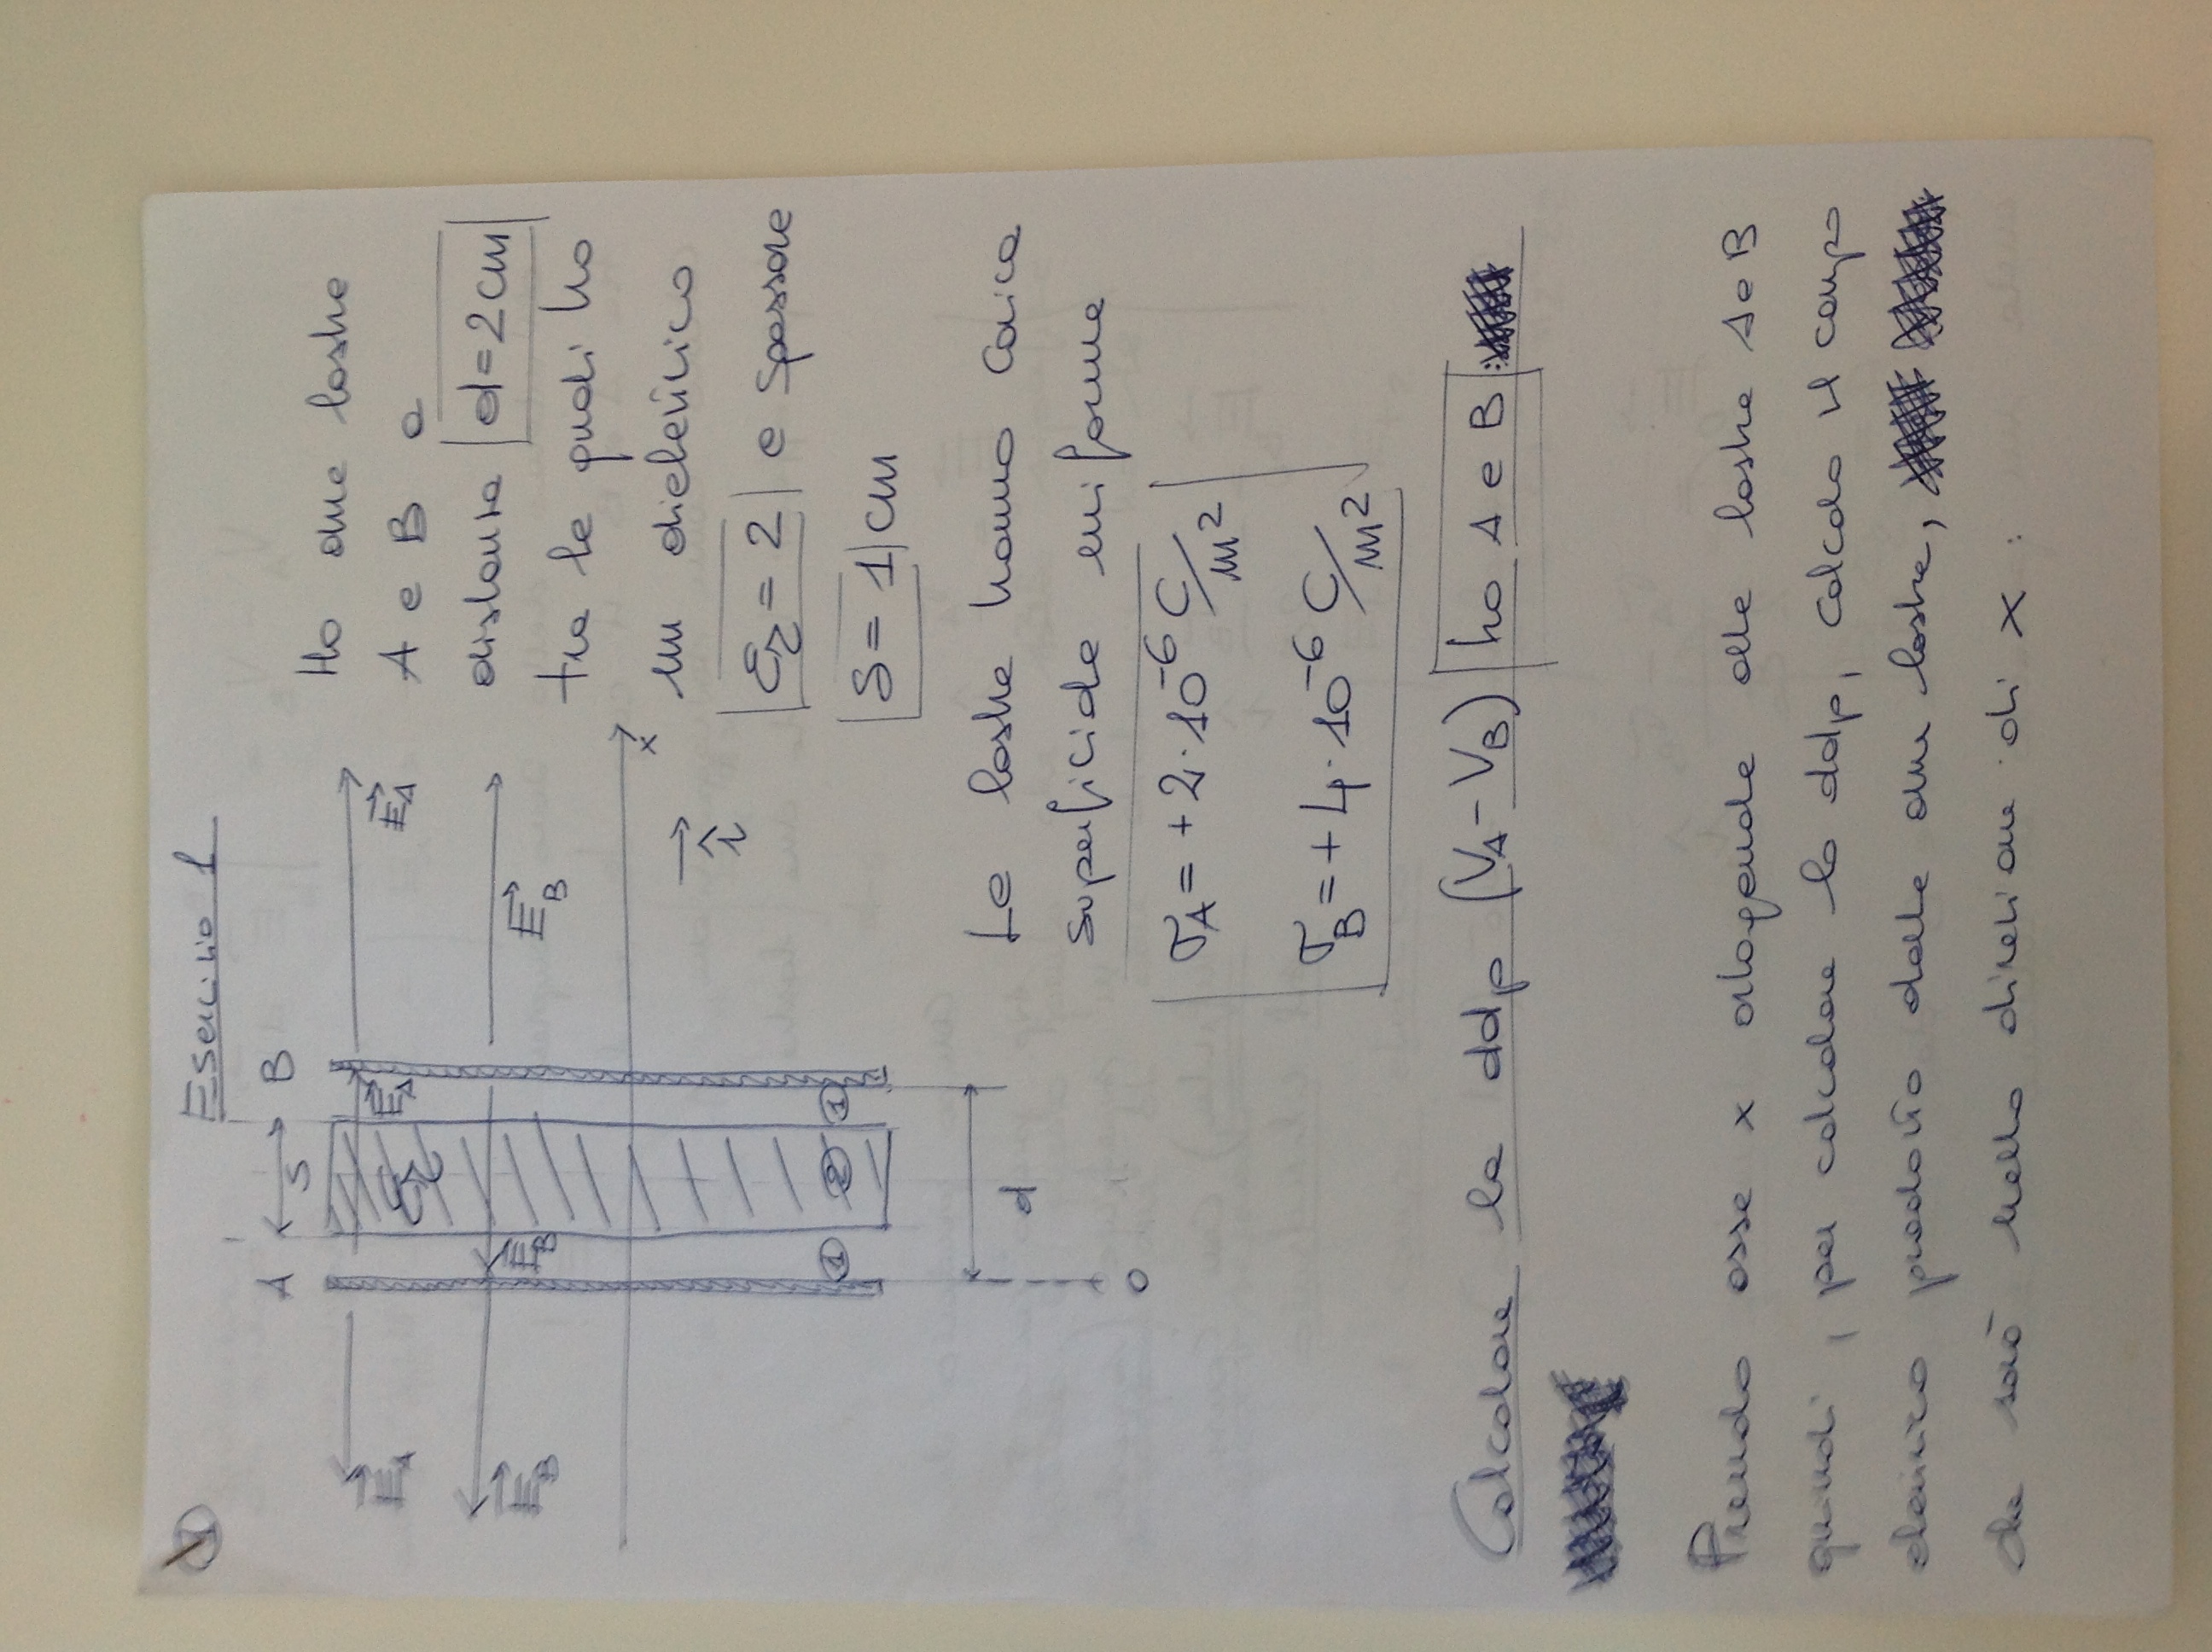 1
Esercizio 1
A S B
E_A E_r E_A E_A
E_B E_B E_B
x
î
1 2 1
d
0
Ho due lastre
A e B a
distanza d=2cm
tra le quali ho
un dielettrico
ε_r = 2 e spessore
S = 1 cm
Le lastre hanno carica
superficiale uniforme
σ_A = +2·10^-6 C/m^2
σ_B = +4·10^-6 C/m^2
Calcolare la ddp (V_A - V_B) tra A e B:
Prendo asse x ortogonale alle lastre A e B
quindi, per calcolare la ddp, calcolo il campo
elettrico prodotto dalle due lastre,
che sarà nella direzione di x: